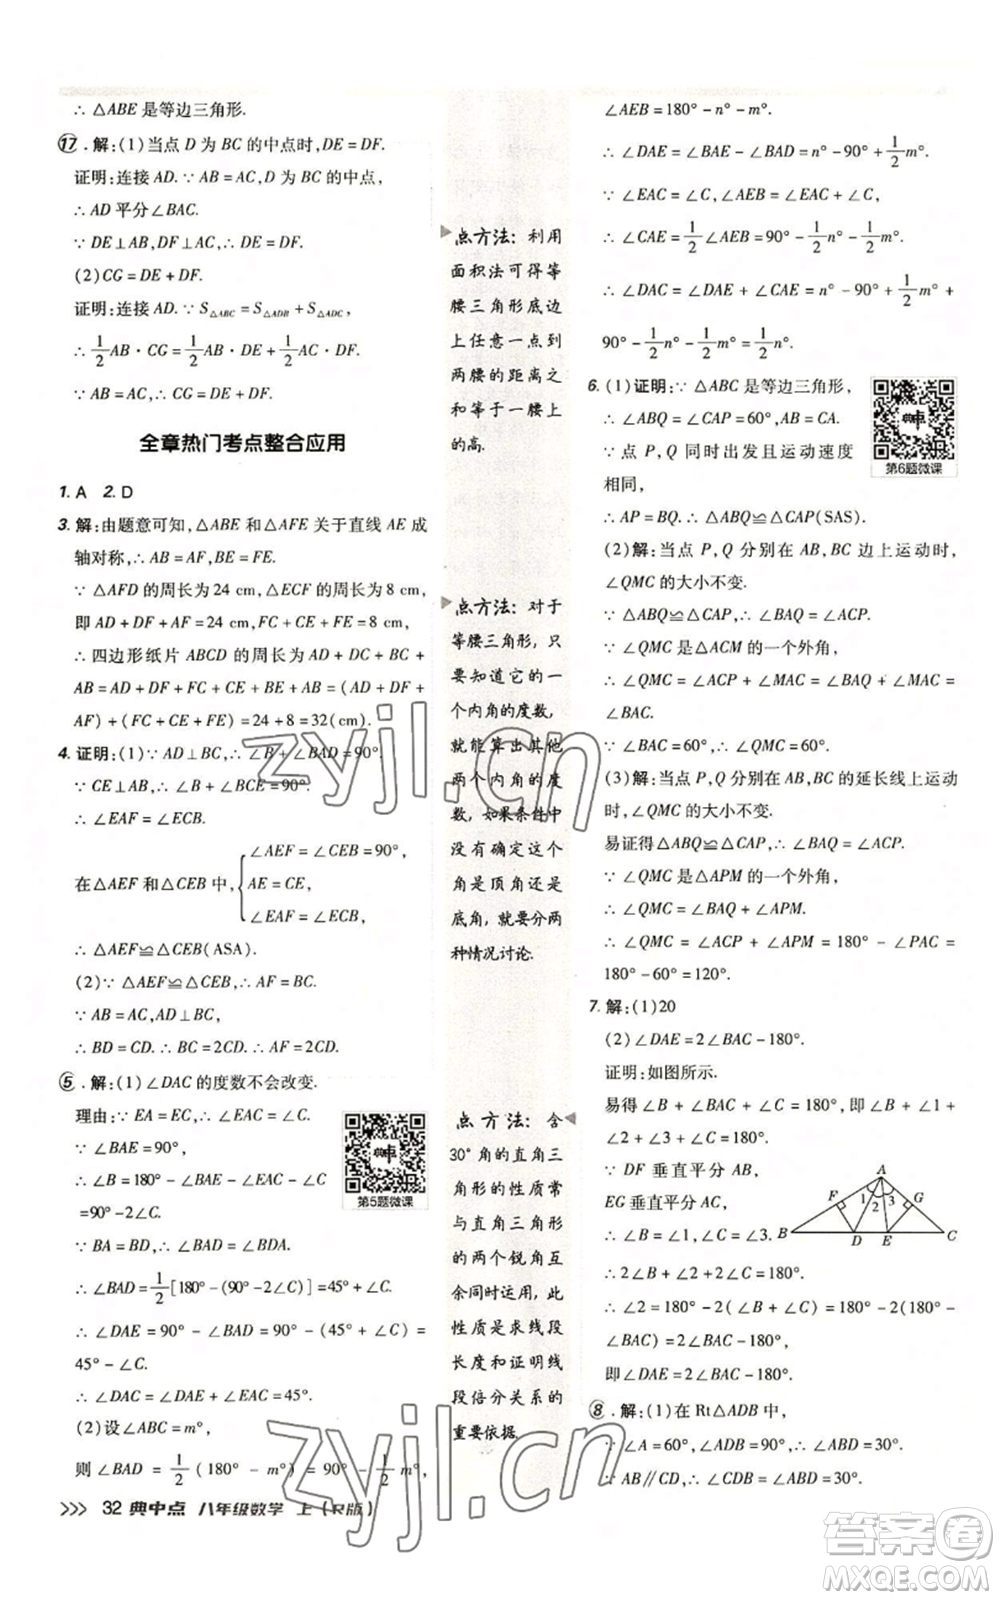 ∴ △ABE 是等边三角形.
17. 解:(1)当点 D 为 BC 的中点时,DE = DF.
证明:连接 AD. ∵ AB = AC,D 为 BC 的中点,
∴ AD 平分∠BAC.
∵ DE⊥AB,DF⊥AC,∴ DE = DF.
(2) CG = DE + DF.
证明:连接 AD. ∵ S△ABC = S△ADB + S△ADC,
∴ 1/2 AB · CG = 1/2 AB · DE + 1/2 AC · DF.
∵ AB = AC,∴ CG = DE + DF.
全章热门考点整合应用
1. A 2. D
3. 解:由题意可知,△ABE 和△AFE 关于直线 AE 成
轴对称,∴ AB = AF,BE = FE.
∵ △AFD 的周长为 24 cm,△ECF 的周长为 8 cm,
即 AD + DF + AF = 24 cm,FC + CE + FE = 8 cm,
∴ 四边形纸片 ABCD 的周长为 AD + DF + FC +
CE + BE + AB = AD + DF + FC + CE + FE + AF = (AD + DF +
AF) + (FC + CE + FE) = 24 + 8 = 32(cm).
4. 证明:(1)∵ AD⊥BC,∴ ∠B + ∠BAD = 90°.
∵ CE⊥AB,∴ ∠B + ∠ECB = 90°.
∴ ∠EAF = ∠ECB.
在△AEF 和△CEB 中,{∠AEF = ∠CEB = 90°,
AE = CE,
∠EAF = ∠ECB,
∴ △AEF≌△CEB(ASA).
(2)∵ △AEF≌△CEB,∴ AF = CB.
∵ AB = AC,AD⊥BC,
∴ BD = CD. ∴ CB = 2CD. ∴ AF = 2CD.
5. 解:(1)∠DAC 的度数不会改变.
理由:∵ EA = EC,∴ ∠EAC = ∠C.
∵ ∠BAE = 90°,
∴ ∠B = 180° - 90° - 2∠C
= 90° - 2∠C.
第5题微课
∵ BA = BD,∴ ∠BAD = ∠BDA.
∴ ∠BAD = 1/2[180° - (90° - 2∠C)] = 45° + ∠C.
∴ ∠DAE = 90° - ∠BAD = 90° - (45° + ∠C) =
45° - ∠C.
∴ ∠DAC = ∠DAE + ∠EAC = 45°.
(2)设∠ABC = m°,
则 ∠BAD = 1/2(180° - m°) = 90° - 1/2 m°,
>>> 32 典中点 八年级数学 上(R版)
点方法:利用
面积法可得等
腰三角形底边
上任意一点到
两腰的距离之
和等于一腰上
的高.
点方法:对于
等腰三角形,只
要知道它的一
个内角的度数,
就能算出其他
两个内角的度
数,如果条件中
没有确定这个
角是顶角还是
底角,就要分两
种情况讨论.
点方法:含
30°角的直角三
角形的性质常
与直角三角形
的两个锐角互
余同时运用,此
性质是求线段
长度和证明线
段倍分关系的
重要依据.
∠AEB = 180° - n° - m°.
∴ ∠DAE = ∠BAE - ∠BAD = n° - 90° + 1/2 m°.
∵ ∠EAC = ∠C,∠AEB = ∠EAC + ∠C,
∴ ∠CAE = 1/2∠AEB = 90° - 1/2 n° - 1/2 m°.
∴ ∠DAC = ∠DAE + ∠CAE = n° - 90° + 1/2 m° +
90° - 1/2 n° - 1/2 m° = 1/2 n°.
6. (1)证明:∵ △ABC 是等边三角形,
∴ ∠ABQ = ∠CAP = 60°,AB = CA.
∵ 点 P,Q 同时出发且运动速度
相同,
第6题微课
∴ AP = BQ. ∴ △ABQ≌△CAP(SAS).
(2)解:当点 P,Q 分别在 AB,BC 边上运动时,
∠QMC 的大小不变.
∵ △ABQ≌△CAP,∴ ∠BAQ = ∠ACP.
∵ ∠QMC 是△ACM 的一个外角,
∴ ∠QMC = ∠ACP + ∠MAC = ∠BAQ + ∠MAC =
∠BAC.
∵ ∠BAC = 60°,∴ ∠QMC = 60°.
(3)解:当点 P,Q 分别在 AB,BC 的延长线上运动
时,∠QMC 的大小不变.
易证得△ABQ≌△CAP,∴ ∠BAQ = ∠ACP.
∵ ∠QMC 是△APM 的一个外角,
∴ ∠QMC = ∠BAQ + ∠APM.
∴ ∠QMC = ∠ACP + ∠APM = 180° - ∠PAC =
180° - 60° = 120°.
7. 解:(1)20
(2) ∠DAE = 2∠BAC - 180°.
证明:如图所示.
易得 ∠B + ∠BAC + ∠C = 180°,即 ∠B + ∠1 +
∠2 + ∠3 + ∠C = 180°.
∵ DF 垂直平分 AB,
EG 垂直平分 AC,
∴ ∠B = ∠1,∠C = ∠3.
A F G 1 2 3 B D E C
∴ 2∠B + 2∠C + ∠2 = 180°.
∴ ∠2 = 180° - 2(∠B + ∠C) = 180° - 2(180° -
∠BAC) = 2∠BAC - 180°,
即∠DAE = 2∠BAC - 180°.
8. 解:(1)在 Rt△ADB 中,
∵ ∠A = 60°,∠ADB = 90°,∴ ∠ABD = 30°.
∵ AB∥CD,∴ ∠CDB = ∠ABD = 30°.
zyjl.cn
zyjl.cn
答案圈
MXQE.COM